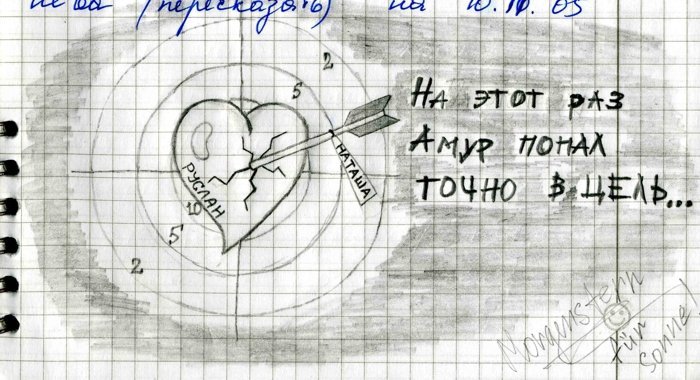 (пересказать) на 10.10.05
2
5
На этот раз
Амур попах
точно в цель...
НАТАША
РУСЛАН
10
5
2
Morgenstern
für
Sonne!